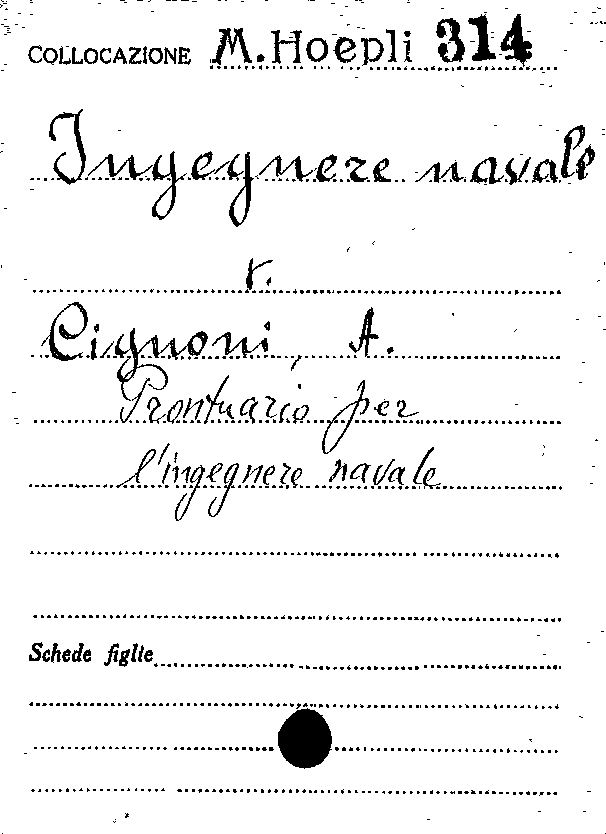 COLLOCAZIONE M. Hoepli 314
Ingegnere navale
v.
Cignoni, A.
Prontuario per
l'ingegnere navale
Schede figlie